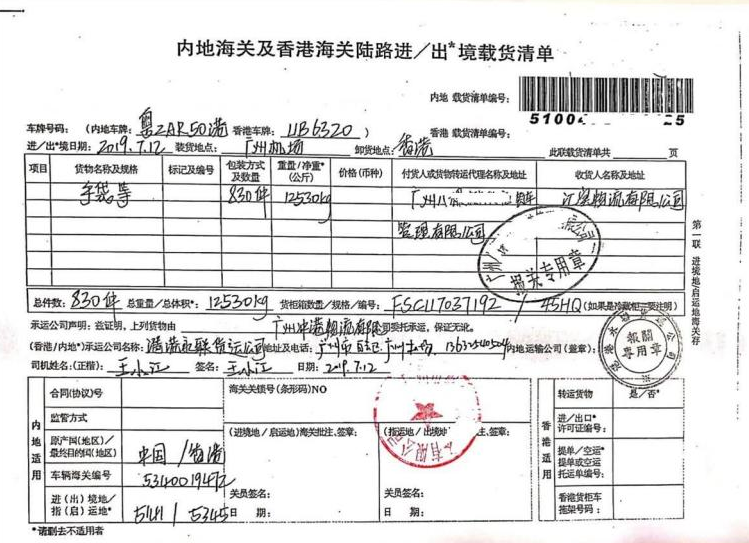 内地海关及香港海关陆路进/出*境载货清单
内地 载货清单编号:
51004 25
车牌号码: (内地车牌: 粤ZAR50港 香港车牌: UB6320 ) 香港 载货清单编号:
进/出*境日期: 2019.7.12 装货地点: 广州机场 卸货地点: 香港 此联载货清单共 页
项目 货物名称及规格 标记及编号 包装方式及数量 重量/净重*(公斤) 价格(币种) 付货人或货物转运代理名称及地址 收货人名称及地址
手袋等 830件 12530kg 广州 物流有限公司
管理有限公司
报关专用章
第一联 进境地启运地海关存
总件数: 830件 总重量/总体积*: 12530kg 货柜箱数量/规格/编号: FSC117037192 / 45HQ (如果是冷藏柜需要注明)
承运公司声明: 兹证明, 上列货物由 广州 港物流有限 司委托承运, 保证无讹。
(香港/内地*)承运公司名称: 港 联货运公司 地址及电话: 广州市白云 广州 内地运输公司(签章):
報關專用章
司机姓名:(正楷). 王小江 签名: 王小江 日期: 2019.7.12
内地适用
合同(协议)号
监管方式
原产国(地区)/最终目的国(地区) 中国/香港
车辆海关编号 5340019492
进(出)境地/指(启)运地* 5141 / 5345
海关关锁号(条形码)NO
(进境地/启运地)海关批注、签章: (指运地/出境地 注、签章:
有限公
关员签名: 关员签名:
日 期: 日 期:
香港适用
转运货物 是/否*
进/出口*许可证编号:
提单/空运*提单或空运托运单编号:
香港货柜车拖架号码:
*请删去不适用者